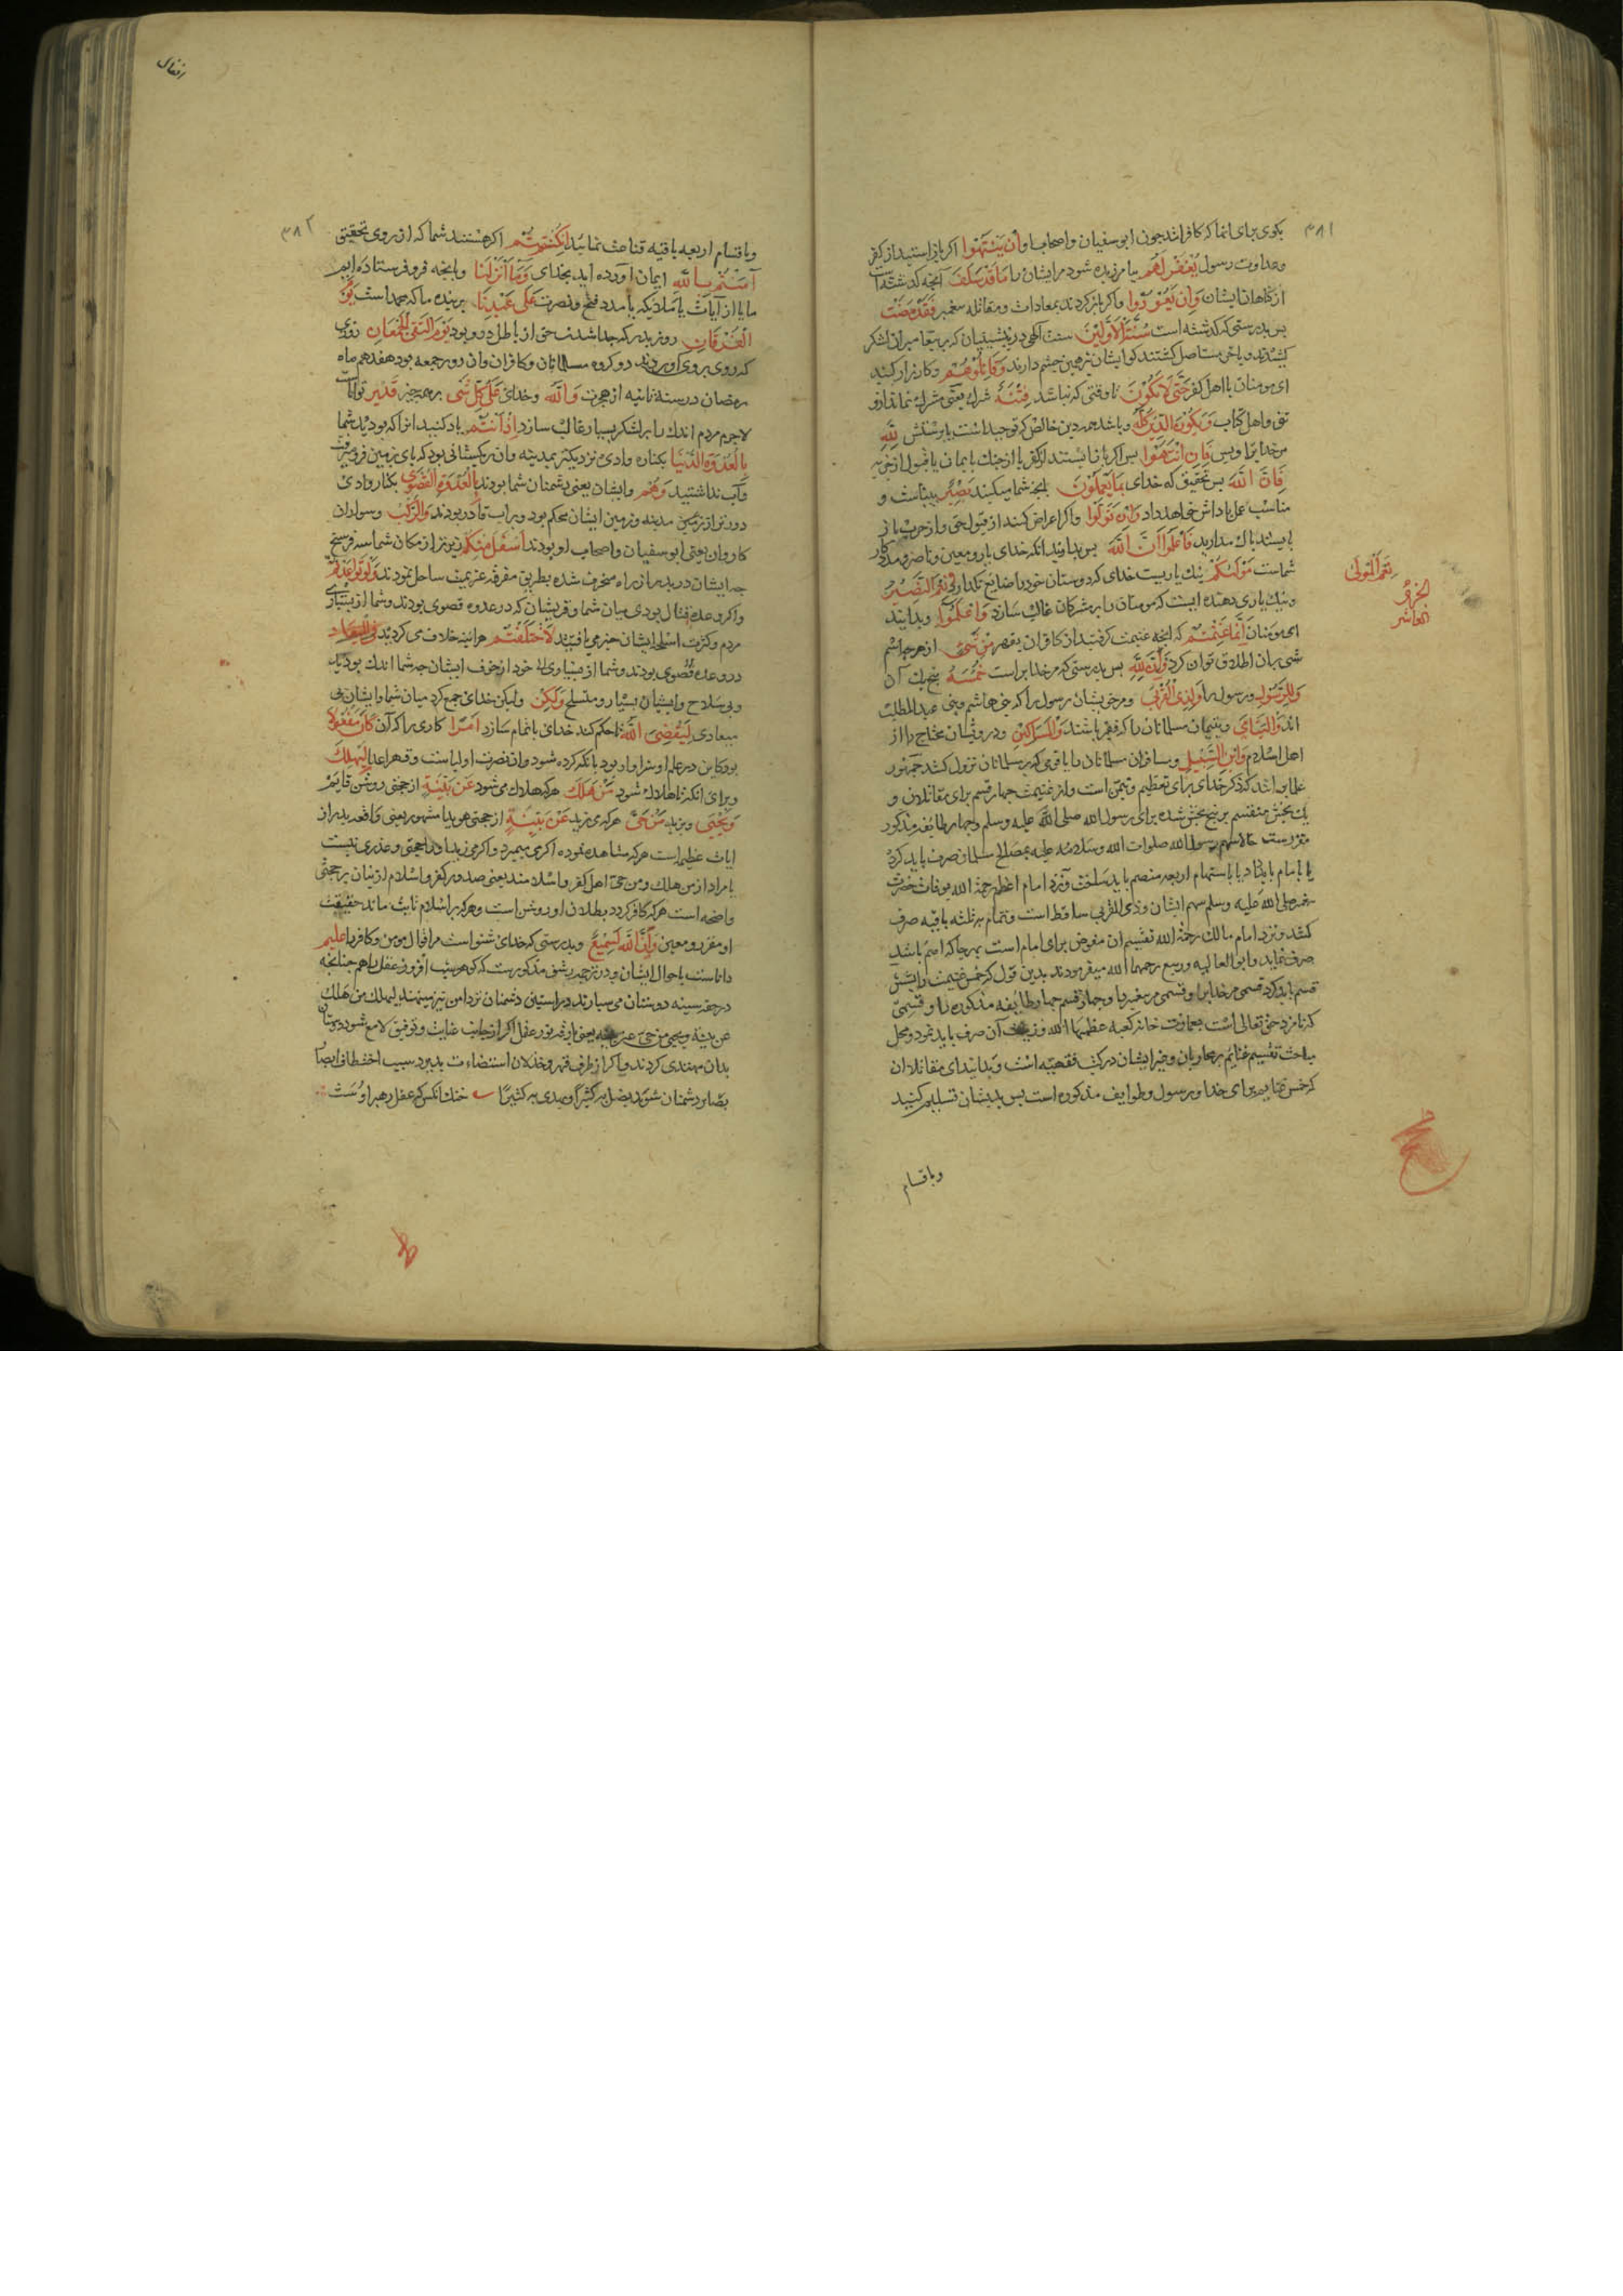 ۳۸۱
بکوی برای انها که کافراند چون ابوسفیان و اصحاب او أن ینتهوا اکر باز استید از کفر
و عداوت رسول یغفر لهم بیامرزیده شود مر ایشان را ما قد سلف آنچه که کذشته است
از کناهان ایشان وإن یعودوا واکر باز کردند بمعادات و مقاتله پیغمبر فقد مضت
پس بدرستی که کذشته است سنة الأولین سنت الهی در پیشینیان که
وقاتلوهم وکارزار کنید
ای مومنان با اهل کفر حتی لا تکون تا وقتی که نباشد فتنة شرک یعنی مشرک نماند از و
ثنی و اهل کتاب ویکون الدین کله و باشد همه دین خالص که توحید است یا پرستش لله
مر خدایرا و پس فإن انتهوا پس اکر باز ایستند از کفر یا از جنک بایمان یا قبول از جزیه
فإن الله پس بتحقیق که خدای بما یعملون بانچه شما میکنید بصیر بیناست و
مناسب عمل پاداش خواهد داد وإن تولوا واکر اعراض کنند از قبول حق و از حرب باز
نایستند باک مدارید فاعلموا أن الله پس بدانید انکه خدای یار و معین و ناصر و مددکار
شماست مولیکم نیک یاریست خدای که دوستان خود را ضایع نکذارد ونعم النصیر
ونیک یاری دهنده ایست که مومنان را بر مشرکان غالب سازد واعلموا وبدانید
ای مومنان أنما غنمتم که انچه غنیمت کرفتید از کافران بقهر من شیء از هرچه اسم
شی بران اطلاق توان کرد فأن لله پس بدرستی که مر خدایراست خمسه پنج یک آن
وللرسول و رسول را ولذی القربی و مر خویشان رسول را که بنی هاشم و بنی عبد المطلب
اند والیتامی و یتیمان مسلمانان را که فقیر باشند والمساکین و درویشان محتاج را از
اهل اسلام وابن السبیل و مسافران مسلمانان را یا قومی که بر مسلمانان نزول کنند جمهور
علما بر انند که ذکر خدای برای تعظیم و تیمن است و از غنیمت چهار قسم برای مقاتلان و
یک بخش منقسم بر پنج بخش شده برای رسول الله صلی الله علیه وسلم و چهار طایفه مذکور
مقررست حالا سهم رسول الله صلوات الله وسلامه علیه بمصالح مسلمانان صرف باید کرد
یا بامام باید داد یا باستهام اربعه منضم باید ساخت و نزد امام اعظم رحمة الله بوفات حضرت
پیغمبر صلی الله علیه وسلم سهم ایشان و ذی القربی ساقط است و تمام بر ثلثه باقیه صرف
کنند و نزد امام مالک رحمة الله تقسیم ان مفوض برای امام است بهرجا که اهم باشد
صرف نماید و ابو العالیه و ربیع رحمهما الله میفرمودند بدین قول که خمس غنیمت را شش
قسم باید کرد قسمی مر خدایرا و قسمی مر پیغمبر را و چهار قسم چهار طایفه مذکوره را و قسمتی
که نامزد حق تعالی است بعمارت خانه کعبه عظمها الله و زینت آن صرف باید نمود و محل
مباحث تقسیم غنائم بر محاربان و غیر ایشان در کتب فقهیه است و بدانید ای مقاتلان
که خمس غنایم برای خدا و رسول و طوایف مذکوره است پس بدیشان تسلیم کنید
و باقسام
نعم المولی
الجزؤ
العاشر
انفال
۳۸۲
و باقسام اربعه باقیه قناعت نمائید إن کنتم اکر هستند شما که از روی تحقیق
آمنتم بالله ایمان اورده اید بخدای وما أنزلنا و بانچه فرو فرستاده ایم
ما یا از آیات یا ملائکه یا مدد فتح و نصرت علی عبدنا بر بنده ما که محمد است یوم
الفرقان روز بدر که جدا شدن حق از باطل درو بود یوم التقی الجمعان روزی
که روی بروی اوردند دو کروه مسلمانان و کافران و ان روز جمعه بود هفدهم ماه
رمضان در سنه ثانیه از هجرت والله و خدای علی کل شیء بر همه چیز قدیر تواناست
لاجرم مردم اندک را بر لشکر بسیار غالب سازد إذ أنتم یاد کنید انرا که بودید شما
بالعدوة الدنیا بکناره وادی نزدیکتر بمدینه و ان ریکستانی بود که پای بزمین فرو میرفت
و آب نداشتید وهم و ایشان یعنی دشمنان شما بودند بالعدوة القصوی بکنار وادی
دورتر از زمین مدینه و زمین ایشان محکم بود و بر اب قادر بودند والرکب و سواران
کاروان یعنی ابوسفیان و اصحاب او بودند أسفل منکم زیرتر از مکان شما سه فرسخ
چه ایشان در بدر از راه منحرف شده بطریق متفرقه عزیمت ساحل نمودند ولو تواعدتم
واکر وعده قتال بودی میان شما و قریشان که در عدوه قصوی بودند و شما از بسیاری
مردم و کثرت اسلحه ایشان خبر می یافتید لاختلفتم هراینه خلاف می کردید فی المیعاد
و بی سلاح و ایشان بسیار و متسلح ولکن ولیکن خدای جمع کرد میان شما و ایشان بی
میعادی لیقضی الله تا حکم کند خدای یا تمام سازد أمرا کاری را که آن کان مفعولا
بود کاین در علم او سزاوار بود بانکه کرده شود و ان نصرت اولیاست و قهر اعدا لیهلک
و برای انکه تا هلاک شود من هلک هرکه هلاک می شود عن بینة از حجتی روشن قایم
ویحیی و بزید من حی هرکه می زید عن بینة از حجتی هویدا مشهور یعنی واقعه بدر از
ایات عظیم است هرکه مشاهده نموده اکر می میرد و اکر می زید او را حجتی و عذری نیست
یا مراد از من هلک و من حی اهل کفر و اسلامند یعنی صدور کفر و اسلام ازیشان بر حجتی
واضحه است هرکه کافر کردد بطلان او روشن است و هرکه بر اسلام ثابت ماند حقیقت
او مقرر و معین وإن الله لسمیع و بدرستی که خدای شنواست مر اقوال مومن و کافر را علیم
داناست باحوال ایشان
در حقه سینه دوستان می سپارند در استین دشمنان نیز
عن بینة ویحیی من حی عن بینة یعنی
بدان مهتدی کردند و اکر از طرف قهر و خذلان
بصایر دشمنان شود یضل به کثیرا ویهدی به کثیرا خنک انکس که عقل رهبر اوست